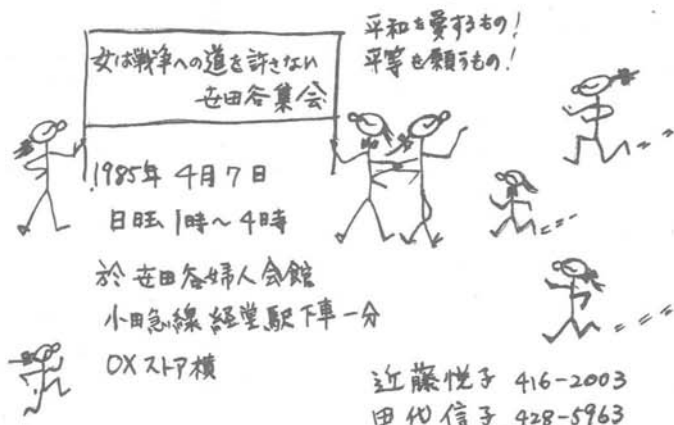 女は戦争への道を許さない
世田谷集会
平和を愛するもの！
平等を願うもの！
1985年 4月7日
日旺 1時〜4時
於 世田谷婦人会館
小田急線 経堂駅下車一分
OXストア横
近藤悦子 416-2003
田代信子 428-5963